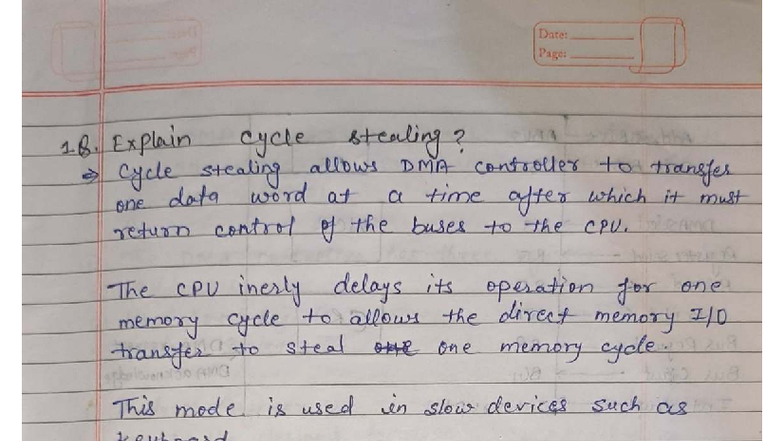 Date:
Page:
18. Explain cycle stealing?
⇒ Cycle stealing allows DMA controller to transfer
one data word at a time after which it must
return control of the buses to the CPU.
The CPU inerly delays its operation for one
memory cycle to allows the direct memory I/O
transfer to steal one memory cycle.
This mode is used in slow devices such as
keyboard